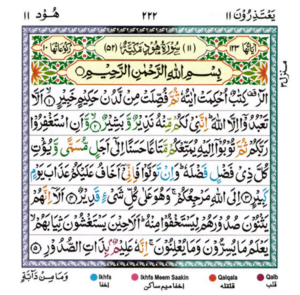 يَعْتَذِرُوْنَ ١١ ٢٢٢ هُوْد ١١
اٰيَاتُهَا ١٢٣ (١١) سُوْرَةُ هُوْدٍ مَكِّيَّةٌ (٥٢) رُكُوْعَاتُهَا ١٠
بِسْمِ اللّٰهِ الرَّحْمٰنِ الرَّحِيْمِ
الٓرٰ كِتٰبٌ اُحْكِمَتْ اٰيٰتُهٗ ثُمَّ فُصِّلَتْ مِنْ لَّدُنْ حَكِيْمٍ خَبِيْرٍ ۝١ اَلَّا
تَعْبُدُوْٓا اِلَّا اللّٰهَ اِنَّنِيْ لَكُمْ مِّنْهُ نَذِيْرٌ وَّبَشِيْرٌ ۝٢ وَّاَنِ اسْتَغْفِرُوْا
رَبَّكُمْ ثُمَّ تُوْبُوْٓا اِلَيْهِ يُمَتِّعْكُمْ مَّتَاعًا حَسَنًا اِلٰٓى اَجَلٍ مُّسَمًّى وَّيُؤْتِ
كُلَّ ذِيْ فَضْلٍ فَضْلَهٗ وَاِنْ تَوَلَّوْا فَاِنِّيْٓ اَخَافُ عَلَيْكُمْ عَذَابَ يَوْمٍ
كَبِيْرٍ ۝٣ اِلَى اللّٰهِ مَرْجِعُكُمْ وَهُوَ عَلٰى كُلِّ شَيْءٍ قَدِيْرٌ ۝٤ اَلَآ اِنَّهُمْ
يَثْنُوْنَ صُدُوْرَهُمْ لِيَسْتَخْفُوْا مِنْهُ اَلَا حِيْنَ يَسْتَغْشُوْنَ ثِيَابَهُمْ
يَعْلَمُ مَا يُسِرُّوْنَ وَمَا يُعْلِنُوْنَ اِنَّهٗ عَلِيْمٌۢ بِذَاتِ الصُّدُوْرِ ۝٥
وَمَا مِنْ دَآبَّةٍ
Ikhfa Ikhfa Meem Saakin Qalqala Qalb
اخفا اخفا میم ساکن قلقلہ قلب